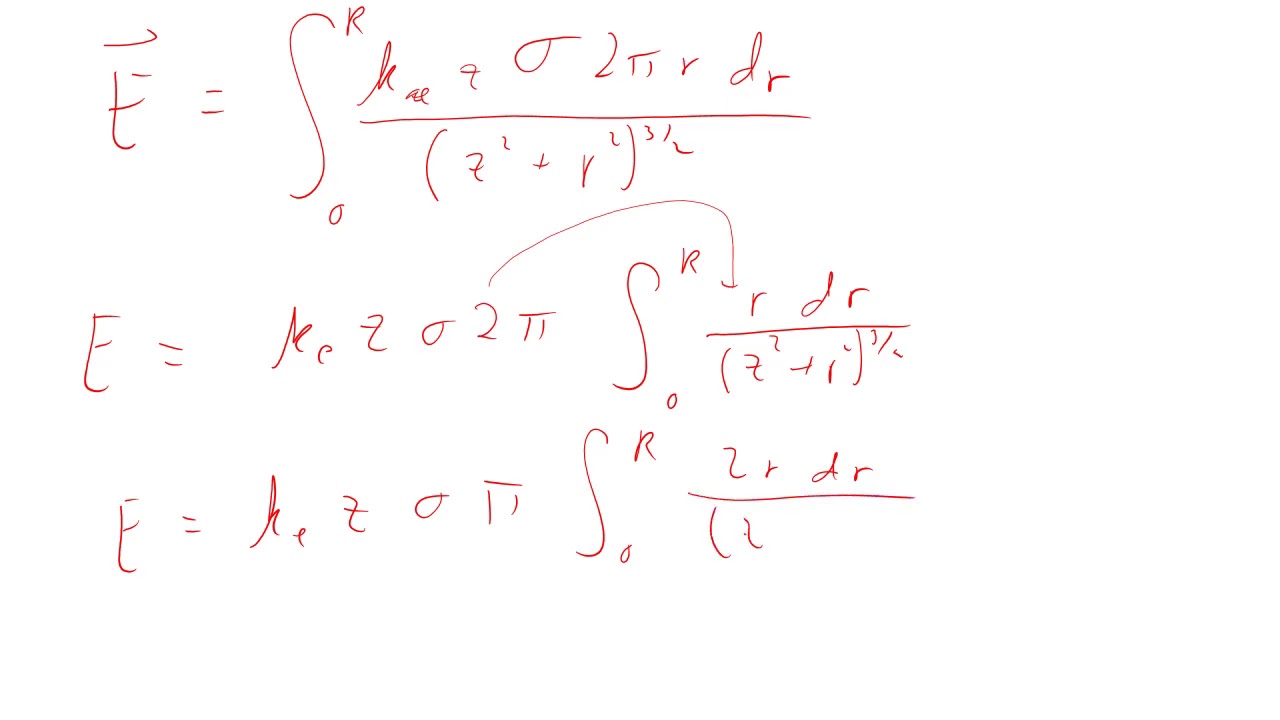 $\vec{E} = \int_0^R \frac{k_e z \sigma 2 \pi r \, dr}{(z^2 + r^2)^{3/2}}$
$E = k_e z \sigma 2 \pi \int_0^R \frac{r \, dr}{(z^2 + r^2)^{3/2}}$
$E = k_e z \sigma \pi \int_0^R \frac{2 r \, dr}{(z}$